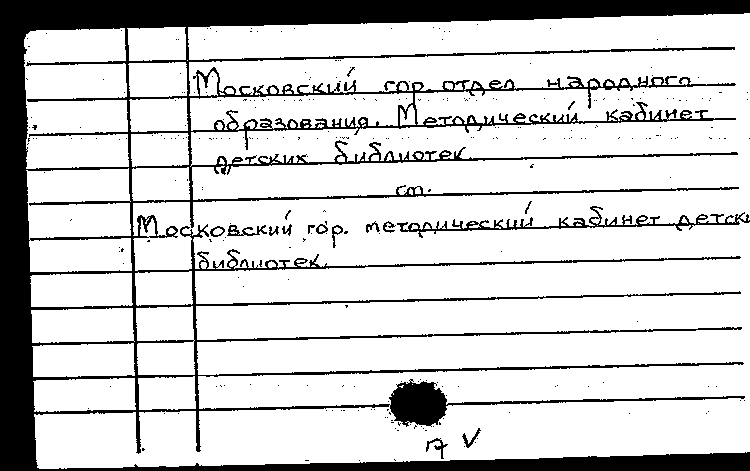 Московский гор. отдел народного
образования. Методический кабинет
детских библиотек.
см.
Московский гор. методический кабинет детски
библиотек.